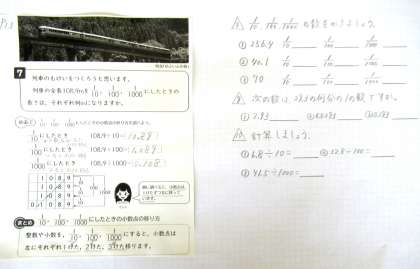 P13
7 列車のもけいをつくろうと思います。
列車の全長108.9mを 1/10、1/100、1/1000 にしたときの
長さは、それぞれ何mになりますか。
1/10、1/100、1/1000 にしたときの
1/10 にしたとき 108.9÷10=(10.89)
1/100 にしたとき 108.9÷100=(1.089)
1/1000 にしたとき 108.9÷1000=(0.1089)
1 0 8 9
1 0 8 9
1 0 8 9
1 0 8 9
1/10 1/100 1/1000
まとめ 1/10、1/100、1/1000 にしたときの小数点の移り方
整数や小数を、1/10、1/100、1/1000 にすると、小数点は
左にそれぞれ 1けた、2けた、3けた移ります。
1/10、1/100、1/1000 の数をかきましょう。
① 256.4 1/10 1/100 1/1000
② 40.1 1/10 1/100 1/1000
③ 70 1/10 1/100 1/1000
次の数は、23.3の何分の1の数ですか。
① 2.33 ② 0.0233 ③ 0.233
計算しましょう。
① 6.8÷10= ② 32.8÷100=
③ 41.5÷1000=